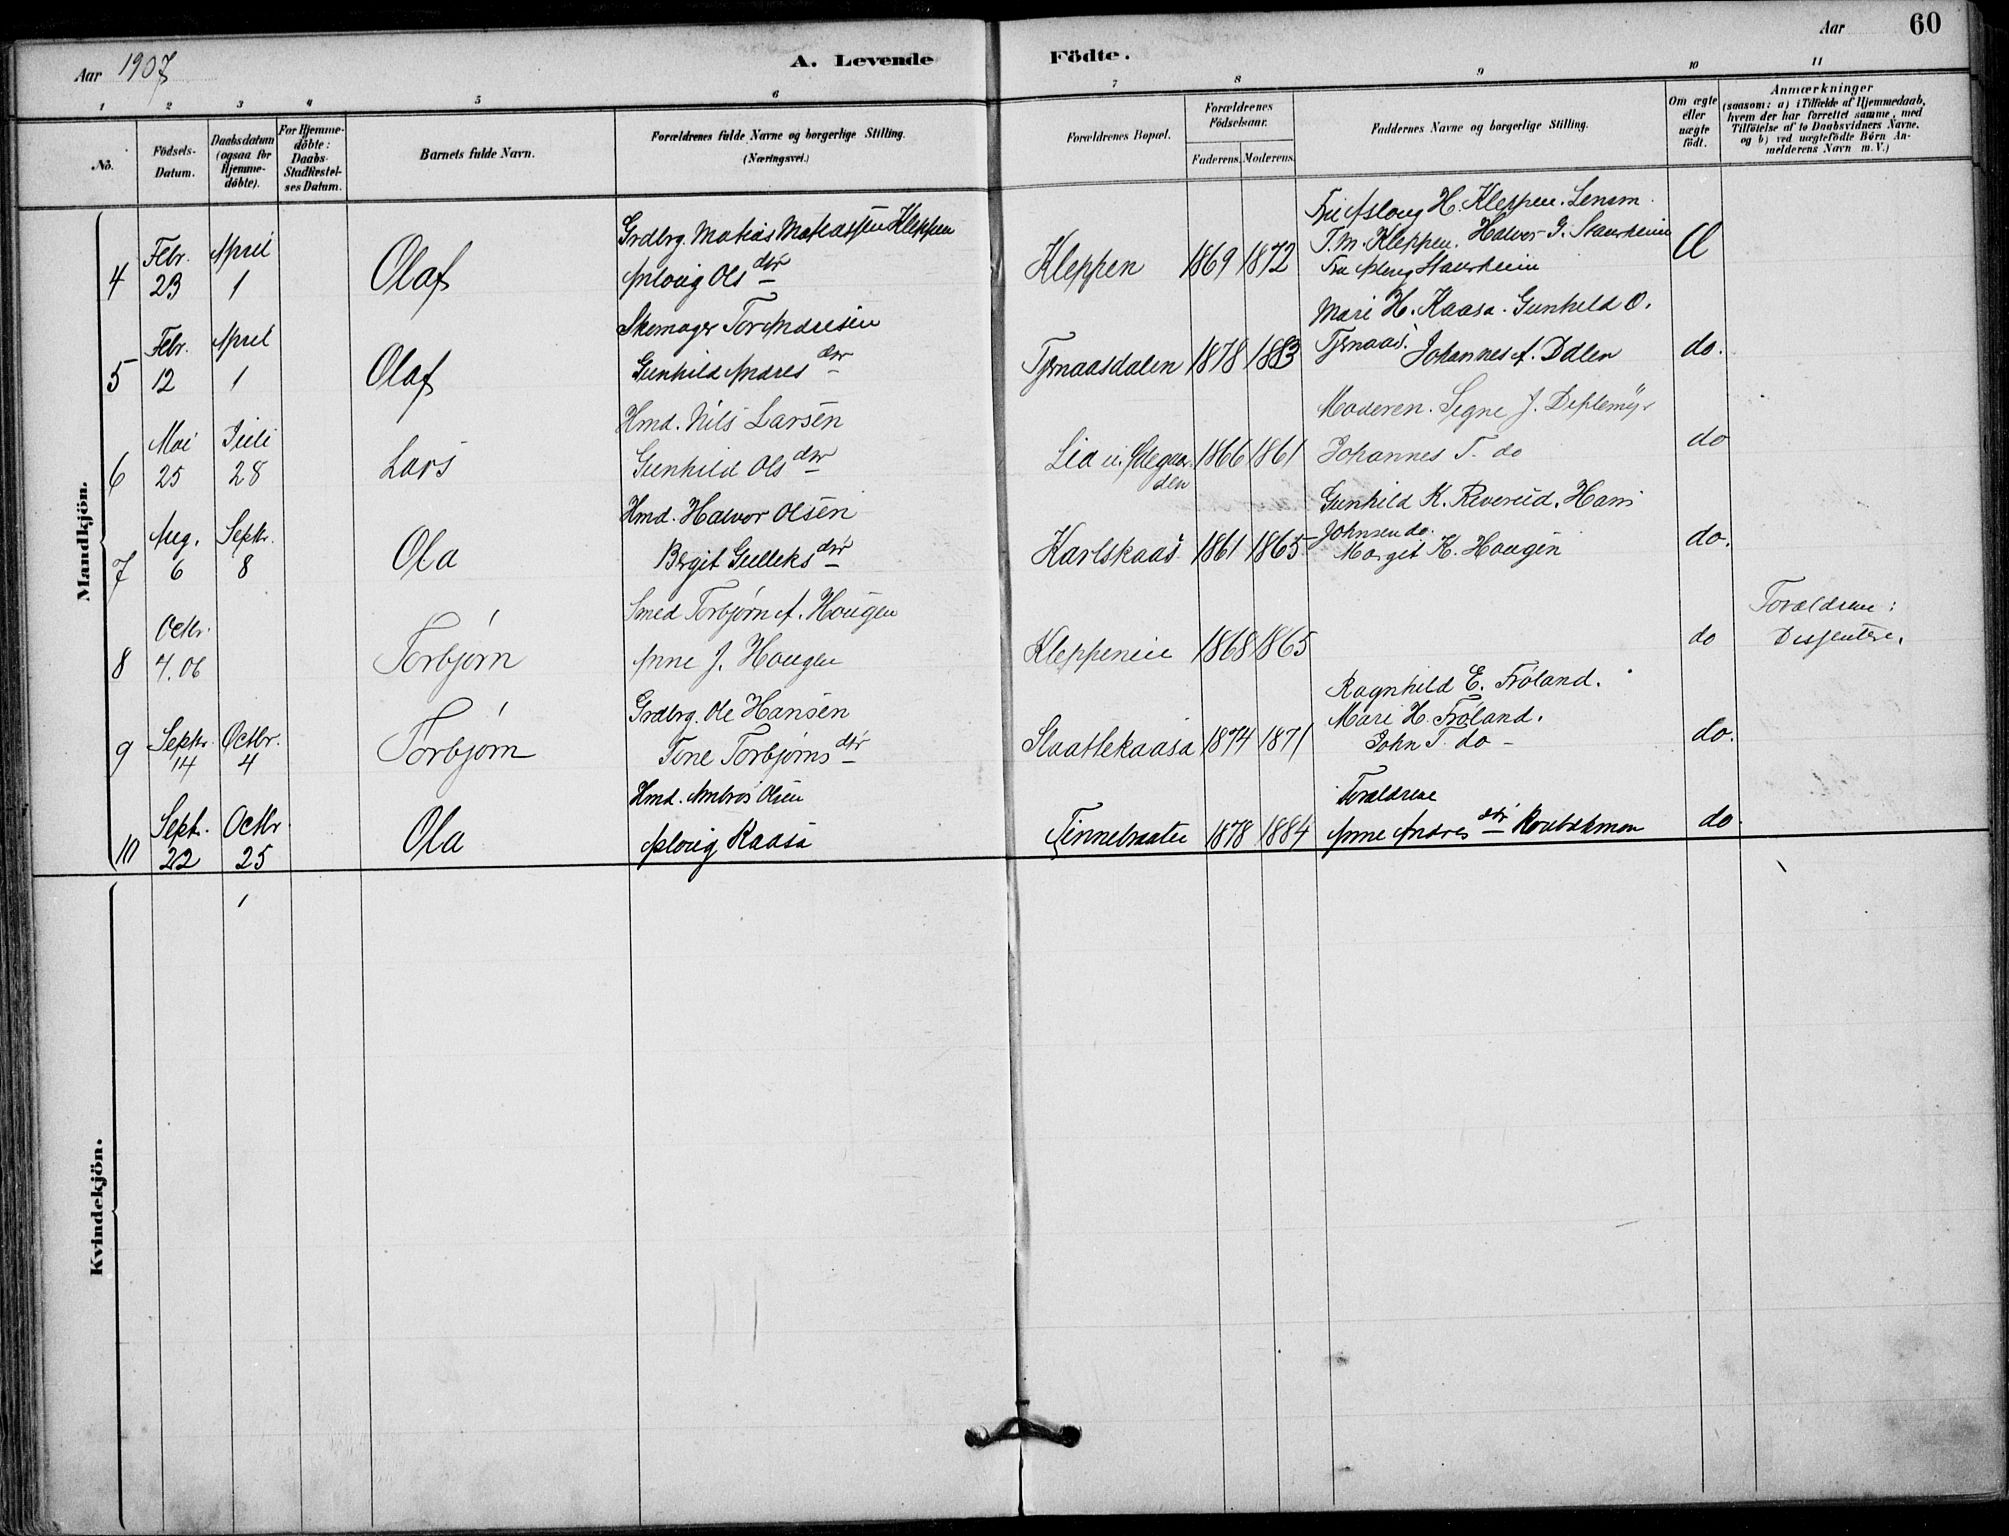 Aar 1907
A. Levende
Födte.
Aar
60
1 2 3 4 5 6 7 8 9 10 11
No.
Födsels-
Datum.
Daabsdatum
(ogsaa for
Hjemme-
döbte).
For Hjemme-
döbte:
Daabs-
Stadfæstel-
ses Datum.
Barnets fulde Navn.
Forældrenes fulde Navne og borgerlige Stilling.
(Næringsvei.)
Forældrenes Bopæl.
Forældrenes
Födselsaar.
Faderens. Moderens.
Faddernes Navne og borgerlige Stilling.
Om ægte
eller
uægte
født.
Anmærkninger
(saasom: a) i Tilfælde af Hjemmedaab,
hvem der har forrettet samme, med
Tilföielse af to Daabsvidners Navne.
og b) ved uægtefödte Börn An-
melderens Navn m. V.)
Mandkjön.
4 Febr. 23 April 1 Olaf
Grdbrg. Matias Matiassen Kleppen
Asloug Ols dtr
Kleppen 1869 1872
Fru Asloug H. Kleppen. Lensm.
T. M. Kleppen. Halvor G. Staurheim
Fru Asloug Staurheim
Æ
5 Febr. 12 April 1 Olaf
Skomager Tor Andresen
Gunhild Andres dtr
Tjønaasdalen 1878 1883
Mari H. Kaasa. Gunhild O.
Tjønaas. Johannes A. Dalen
do.
6 Mai 25 Juli 28 Lars
Hmd. Nils Larsen
Gunhild Ols dtr
Lia u. 1866 1861
den
Moderen. Signe J. Deplemyr
Johannes T. do
do
7 Aug. 6 Septr. 8 Ola
Hmd. Halvor Olsen
Birgit Gulleks dtr
Karlskaas 1861 1865
Gunhild K. Reverud. Hans
Johnsen do.
Margit K. Haugen
do.
8 Octbr. 4. 06 Torbjørn
Smed Torbjørn A. Hougen
Anne J. Hougen
Kleppeneie 1868 1865
do
Forældrene:
Dissentere.
9 Septr. 14 Octbr. 4 Torbjørn
Grdbrg. Ole Hansen
Tone Torbjørns dtr
Slaattekaasa 1874 1871
Ragnhild E. Frøland.
Mari H. Frøland.
John T. do
do.
10 Sept. 22 Octbr 25 Ola
Hmd. Ambros Olsen
Asloug Kaasa
1878 1884
Forældrene
Anne Andres dtr
do.
1
Kvindekjön.